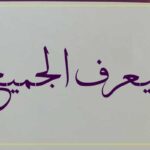 يعرف الجميع